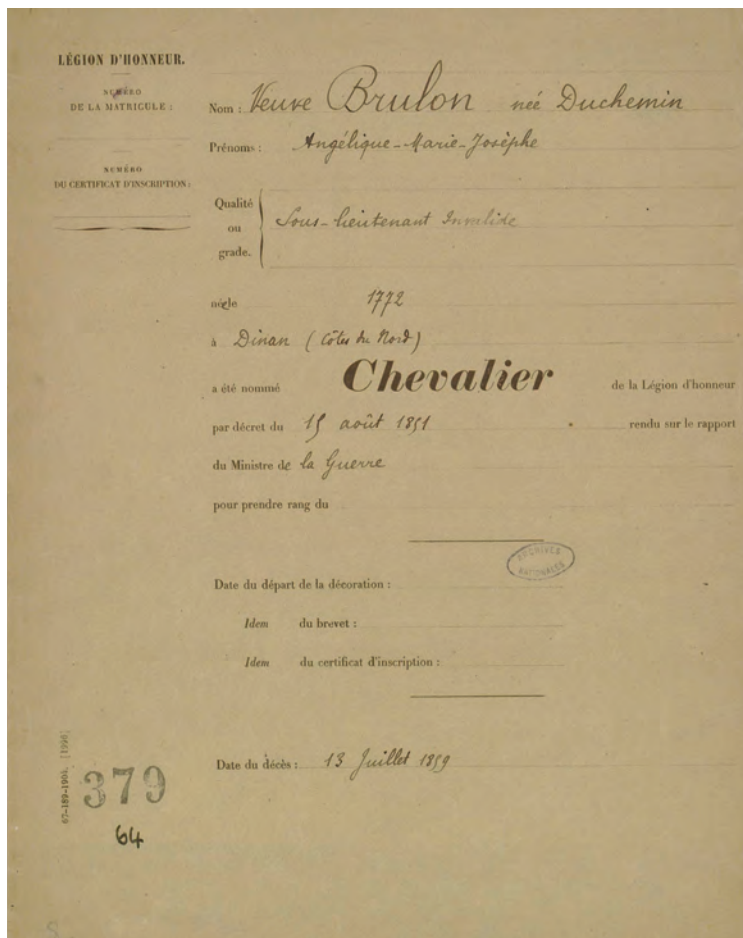 LÉGION D'HONNEUR.
NUMÉRO
DE LA MATRICULE :
NUMÉRO
DU CERTIFICAT D'INSCRIPTION :
Nom : Veuve Brulon neé Duchemin
Prénoms : Angélique-Marie-Josèphe
Qualité
ou
grade.
Sous-lieutenant Invalide
né le 1772
à Dinan (Côtes du Nord)
a été nommé Chevalier de la Légion d'honneur
par décret du 15 août 1851 rendu sur le rapport
du Ministre de la Guerre
pour prendre rang du
ARCHIVES
NATIONALES
Date du départ de la décoration :
Idem du brevet :
Idem du certificat d'inscription :
Date du décès : 13 Juillet 1859
67-189-1904. [1996]
379
64